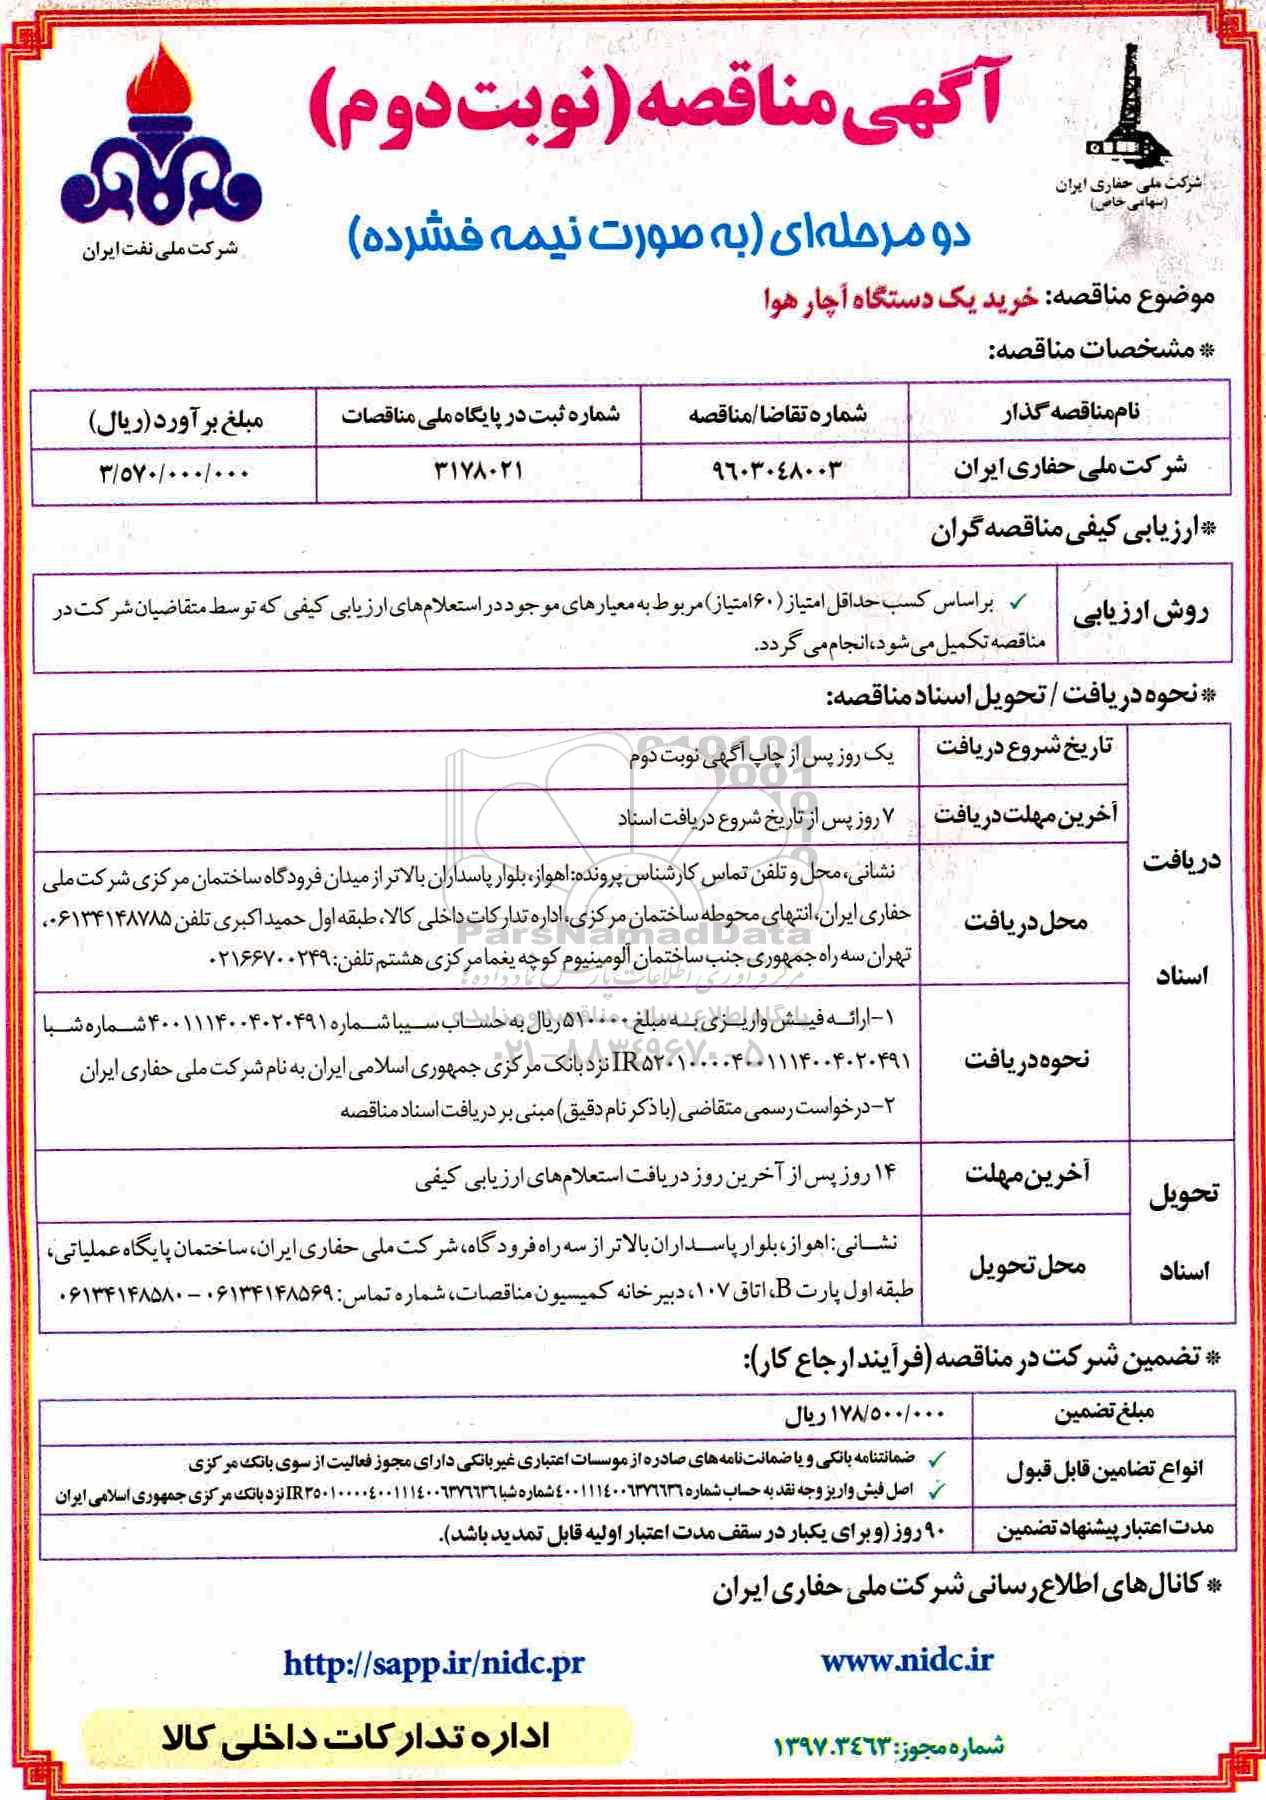 آگهی مناقصه (نوبت دوم)
شرکت ملی حفاری ایران
(سهامی خاص)
شرکت ملی نفت ایران
دو مرحله‌ای (به صورت نیمه فشرده)
موضوع مناقصه: خرید یک دستگاه آچار هوا
* مشخصات مناقصه:
نام مناقصه گذار
شماره تقاضا/مناقصه
شماره ثبت در پایگاه ملی مناقصات
مبلغ برآورد (ریال)
شرکت ملی حفاری ایران
۹۶۰۳۰۴۸۰۰۳
۳۱۷۸۰۲۱
۳/۵۷۰/۰۰۰/۰۰۰
*ارزیابی کیفی مناقصه گران
روش ارزیابی
✓ براساس کسب حداقل امتیاز (۶۰امتیاز) مربوط به معیارهای موجود در استعلام‌های ارزیابی کیفی که توسط متقاضیان شرکت در
مناقصه تکمیل می‌شود، انجام می گردد.
* نحوه دریافت / تحویل اسناد مناقصه:
دریافت
اسناد
تاریخ شروع دریافت
یک روز پس از چاپ آگهی نوبت دوم
آخرین مهلت دریافت
۷ روز پس از تاریخ شروع دریافت اسناد
محل دریافت
نشانی، محل و تلفن تماس کارشناس پرونده: اهواز، بلوار پاسداران بالاتر از میدان فرودگاه ساختمان مرکزی شرکت ملی
حفاری ایران، انتهای محوطه ساختمان مرکزی، اداره تدارکات داخلی کالا، طبقه اول حمید اکبری تلفن ۰۶۱۳۴۱۴۸۷۸۵،
تهران سه راه جمهوری جنب ساختمان آلومینیوم کوچه یغما مرکزی هشتم تلفن: ۰۲۱۶۶۷۰۰۲۴۹
نحوه دریافت
۱-ارائه فیش واریزی به مبلغ ۵۱۰۰۰۰ ریال به حساب سیبا شماره ۴۰۰۱۱۱۴۰۰۴۰۲۰۴۹۱ شماره شبا
IR۵۲۰۱۰۰۰۰۴۰۰۱۱۱۴۰۰۴۰۲۰۴۹۱ نزد بانک مرکزی جمهوری اسلامی ایران به نام شرکت ملی حفاری ایران
۲-درخواست رسمی متقاضی (با ذکر نام دقیق) مبنی بر دریافت اسناد مناقصه
تحویل
اسناد
آخرین مهلت
۱۴ روز پس از آخرین روز دریافت استعلام‌های ارزیابی کیفی
محل تحویل
نشانی: اهواز، بلوار پاسداران بالاتر از سه راه فرودگاه، شرکت ملی حفاری ایران، ساختمان پایگاه عملیاتی،
طبقه اول پارت B، اتاق ۱۰۷، دبیرخانه کمیسیون مناقصات، شماره تماس: ۰۶۱۳۴۱۴۸۵۶۹ - ۰۶۱۳۴۱۴۸۵۸۰
* تضمین شرکت در مناقصه (فرآیند ارجاع کار):
مبلغ تضمین
۱۷۸/۵۰۰/۰۰۰ ریال
انواع تضامین قابل قبول
✓ ضمانتنامه بانکی و یا ضمانت‌نامه‌های صادره از موسسات اعتباری غیربانکی دارای مجوز فعالیت از سوی بانک مرکزی
✓ اصل فیش واریز وجه نقد به حساب شماره ۴۰۰۱۱۱۴۰۰۶۳۷۶۶۳۶ شماره شبا IR۳۵۰۱۰۰۰۰۴۰۰۱۱۱۴۰۰۶۳۷۶۶۳۶ نزد بانک مرکزی جمهوری اسلامی ایران
مدت اعتبار پیشنهاد تضمین
۹۰ روز (و برای یکبار در سقف مدت اعتبار اولیه قابل تمدید باشد).
* کانال‌های اطلاع رسانی شرکت ملی حفاری ایران
www.nidc.ir
http://sapp.ir/nidc.pr
شماره مجوز: ۱۳۹۷.۳۴۶۳
اداره تدارکات داخلی کالا
ParsNamadData
پایگاه اطلاع رسانی مناقصه و مزایده
۰۲۱-۸۸۳۴۹۶۷۰-۵